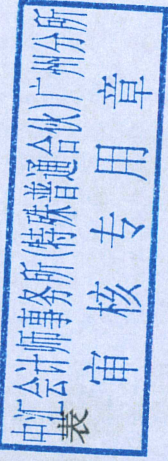 中汇会计师事务所(特殊普通合伙)广州分所
审核专用章
表